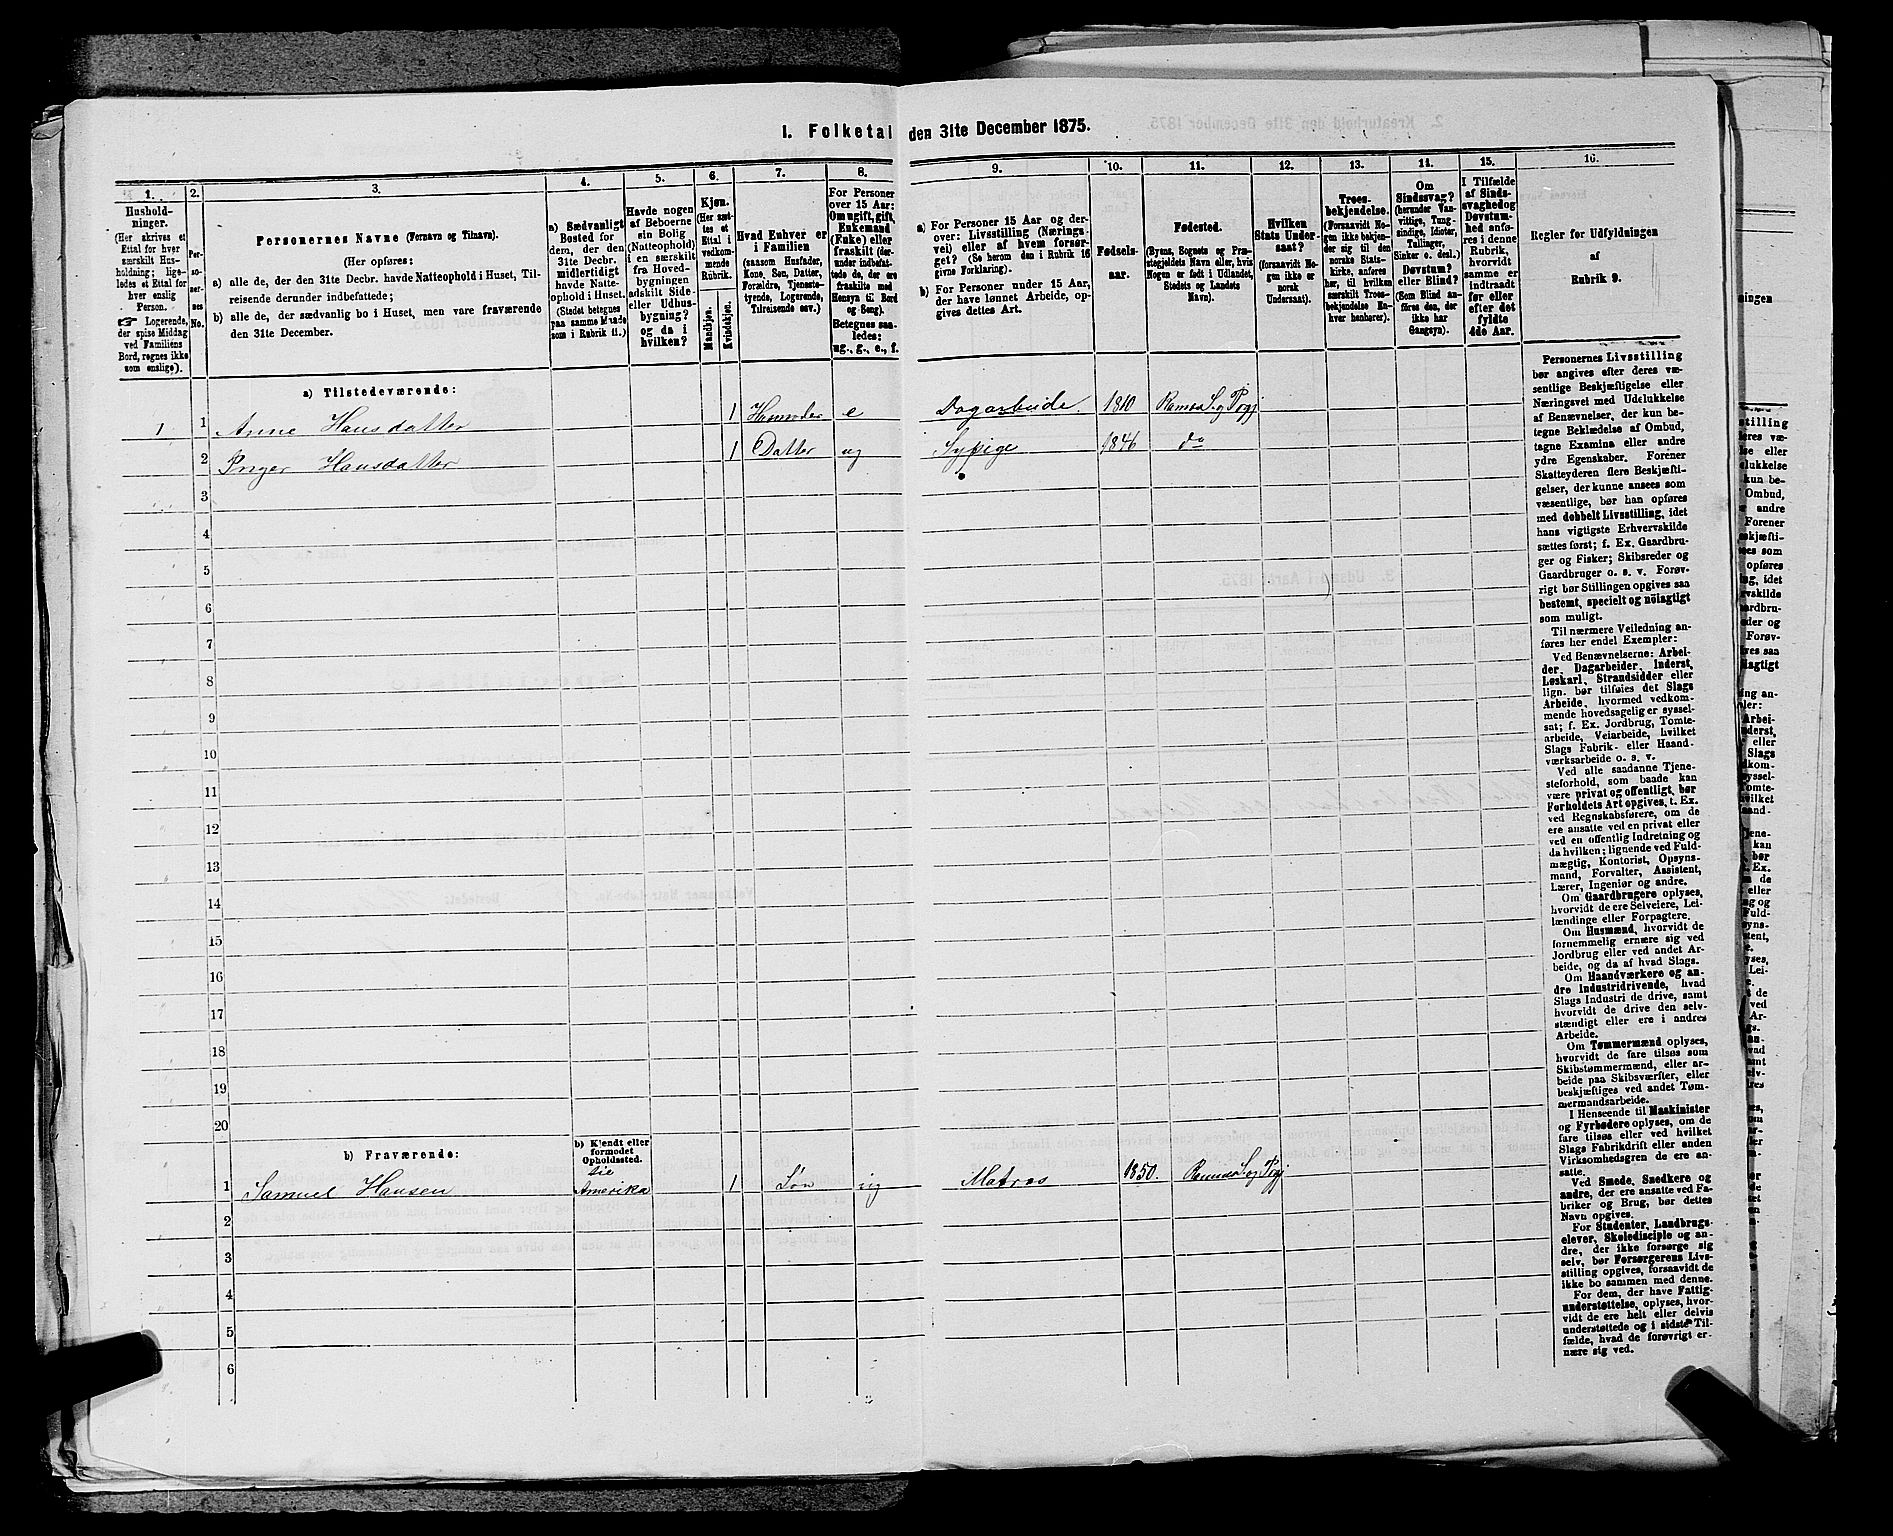 1. Folketal den 31te December 1875.
1.
2.
3.
4.
5.
6.
7.
8.
9.
10.
11.
12.
13.
14.
15.
16.
Hushold-
ninger.
(Her skrives et
Ettal for hver
særskilt Hus-
holdning; lige-
ledes et Ettal for
hver enslig
Person.
☞ Logerende,
der spise Middag
ved Familiens
Bord, regnes ikke
som enslige).
Per-
so-
ner-
nes
No.
Personernes Navne (Fornavn og Tilnavn).
(Her opføres:
a) alle de, der den 31te Decbr. havde Natteophold i Huset, Til-
reisende derunder indbefattede;
b) alle de, der sædvanlig bo i Huset, men vare fraværende
den 31te December.
a) Bædvanligt
Bosted for
dem, der den
31te Decbr.
midlertidigt
havde Natte-
ophold i Huset.
(Stedet betegnes
paa samme Maade
som i Rubrik 11.)
Havde nogen
af Beboerne
sin Bolig
(Natteophold)
i en særskilt
fra Hoved-
bygningen
adskilt Side-
eller Udhus-
bygning?
og da i
hvilken?
Kjøn.
(Her sæt-
tes et
Ettal i
vedkom-
mende
Rubrik.
Mandkjøn.
Kvindekjøn.
Hvad Enhver er
i Familien
(saasom Husfader,
Kone, Søn, Datter,
Forældre, Tjeneste-
tyende, Logerende,
Tilreisende osv.)
For Personer
over 15 Aar:
Om ugift, gift,
Enkemand
(Enke) eller
fraskilt (der-
under indbefat-
tede de, der ere
fraskilte med
Hensyn til Bord
og Seng).
Betegnes saa-
ledes:
ug., g., e., f.
a) For Personer 15 Aar og der-
over: Livsstilling (Nærings-
vei) eller af hvem forsør-
get? (Se herom den i Rubrik 16
givne Forklaring).
b) For Personer under 15 Aar,
der have lønnet Arbeide, op-
gives dettes Art.
Fødsels-
aar.
Fødested.
(Byens, Sognets og Præ-
stegjeldets Navn eller, hvis
Nogen er født i Udlandet,
Stedets og Landets
Navn).
Hvilken
Stats Under-
saat?
(forsaavidt No-
gen ikke er
norsk
Undersaat).
Troes-
bekjendelse.
(Forsaavidt No-
gen ikke bekjen-
der sig til den
norske Stats-
kirke, anføres
her, til hvilken
særskilt Troes-
bekjendelse En-
hver henhører).
Om
Sindssvag?
(herunder Van-
vittige, Tung-
sindige, Idioter,
Tullinger,
Sinker o. desl.)
Døvstum?
eller Blind?
(Som Blind an-
føres den, der
ikke har
Gangsyn).
I Tilfælde
af Sinds-
svaghed og
Døvstum-
hed anfø-
res i denne
Rubrik,
hvorvidt
samme er
indtraadt
før eller
efter det
fyldte
4de Aar.
Regler for Udfyldningen
af
Rubrik 9.
a) Tilstedeværende:
1 1 Anne Hansdatter 1 Husmoder e Dagarbeide. 1810
2 Inger Hansdatter 1 Datter ug Sypige 1846 do
3
4
5
6
7
8
9
10
11
12
13
14
15
16
17
18
19
20
b) Fraværende:
b) Kjendt eller
formodet
Opholdssted.
1 Samuel Hansen Amerika 1 Søn ug Matros 1850.
2
3
4
5
6
Personernes Livsstilling
bør angives efter deres væ-
sentlige Beskjæftigelse eller
Næringsvei med Udelukkelse
af Benævnelser, der kun be-
tegne Beklædelse af Ombud,
tagne Examina eller andre
ydre Egenskaber. Forener
Skatteyderen flere Beskjæfti-
gelser, der kunne ansees som
væsentlige, bør han opføres
med dobbelt Livsstilling, idet
hans vigtigste Erhvervskilde
sættes først; f. Ex. Gaardbru-
ger og Fisker; Skibsreder og
Gaardbruger o. s. v. Forøv-
rigt bør Stillingen opgives saa
bestemt, specielt og nöiagtigt
som muligt.
Til nærmere Veiledning an-
føres her endel Exempler:
Ved Benævnelserne: Arbei-
der, Dagarbeider, Inderst,
Løskarl, Strandsidder eller
lign. bør tilføies det Slags
Arbeide, hvormed vedkom-
mende hovedsagelig er syssel-
sat; f. Ex. Jordbrug, Tomte-
arbeide, Veiarbeide, hvilket
Slags Fabrik- eller Haand-
værksarbeide o. s. v.
Ved alle saadanne Tjene-
steforhold, som baade kan
være privat og offentligt, bør
Forholdets Art opgives, t. Ex.
ved Regnskabsførere, om de
ere ansatte ved en privat eller
ved en offentlig Indretning og
da hvilken; lignende ved Fuld-
mægtig, Kontorist, Opsyns-
mand, Forvalter, Assistent,
Lærer, Ingeniør og andre.
Om Gaardbrugere oplyses,
hvorvidt de ere Selveiere, Lei-
lændinge eller Forpagtere.
Om Husmænd, hvorvidt de
fornemmelig ernære sig ved
Jordbrug eller ved andet Ar-
beide, og da af hvad Slags.
Om Haandværkere og an-
dre Industridrivende, hvad
Slags Industri de drive, samt
hvorvidt de drive den selv-
stændigt eller ere i andres
Arbeide.
Om Tømmermænd oplyses,
hvorvidt de fare tilsøs som
Skibstømmermænd, eller ar-
beide paa Skibsværfter, eller
beskjæftiges ved andet Tøm-
mermandsarbeide.
I Henseende til Maskinister
og Fyrbødere oplyses, om de
fare tilsøs eller ved hvilket
Slags Fabrikdrift eller anden
Virksomhedsgren de ere an-
satte.
Ved Smede, Snedkere og
andre, der ere ansatte ved Fa-
briker og Brug, bør dettes
Navn opgives.
For Studenter, Landbrugs-
elever, Skoledisciple og an-
dre, der ikke forsørge sig
selv, bør Forsørgerens Livs-
stilling opgives, forsaavidt de
ikke bo sammen med denne.
For dem, der have Fattig-
understøttelse, oplyses, hvor-
vidt de ere helt eller delvis
understøttede og i sidste Til-
fælde, hvad de forøvrigt er-
nære sig ved.